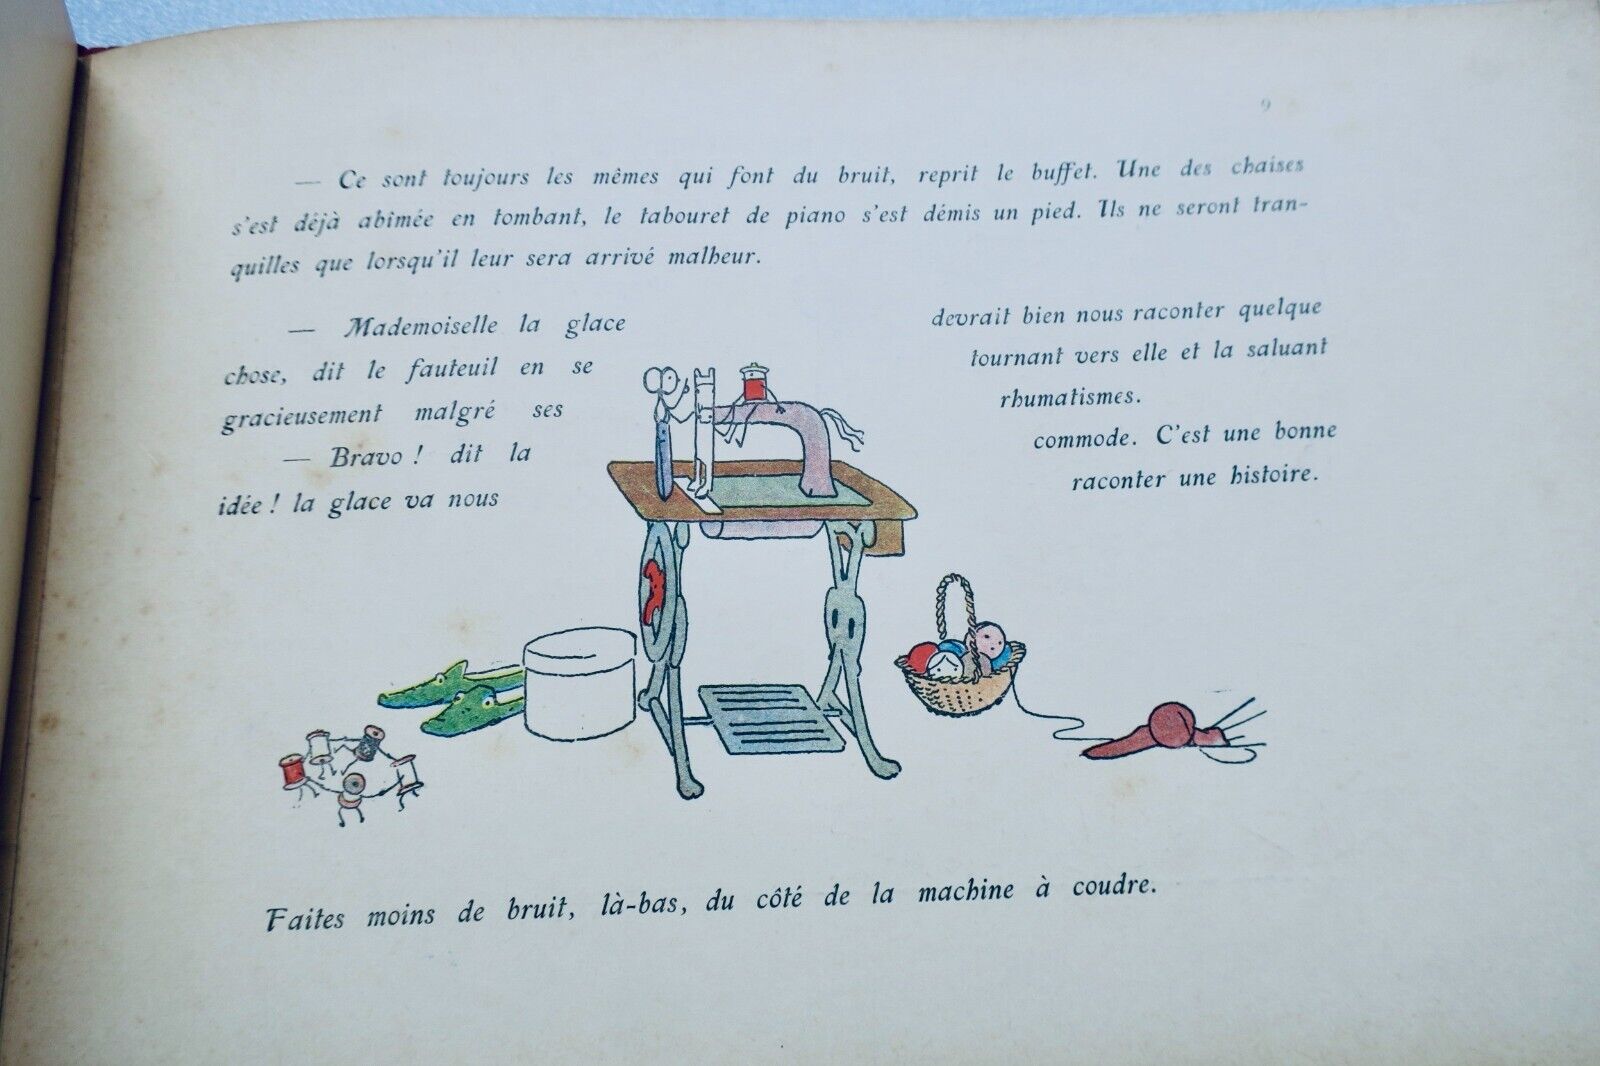 9
— Ce sont toujours les mêmes qui font du bruit, reprit le buffet. Une des chaises
s'est déjà abîmée en tombant, le tabouret de piano s'est démis un pied. Ils ne seront tran-
quilles que lorsqu'il leur sera arrivé malheur.
— Mademoiselle la glace devrait bien nous raconter quelque
chose, dit le fauteuil en se tournant vers elle et la saluant
gracieusement malgré ses rhumatismes.
— Bravo ! dit la commode. C'est une bonne
idée ! la glace va nous raconter une histoire.
Faites moins de bruit, là-bas, du côté de la machine à coudre.